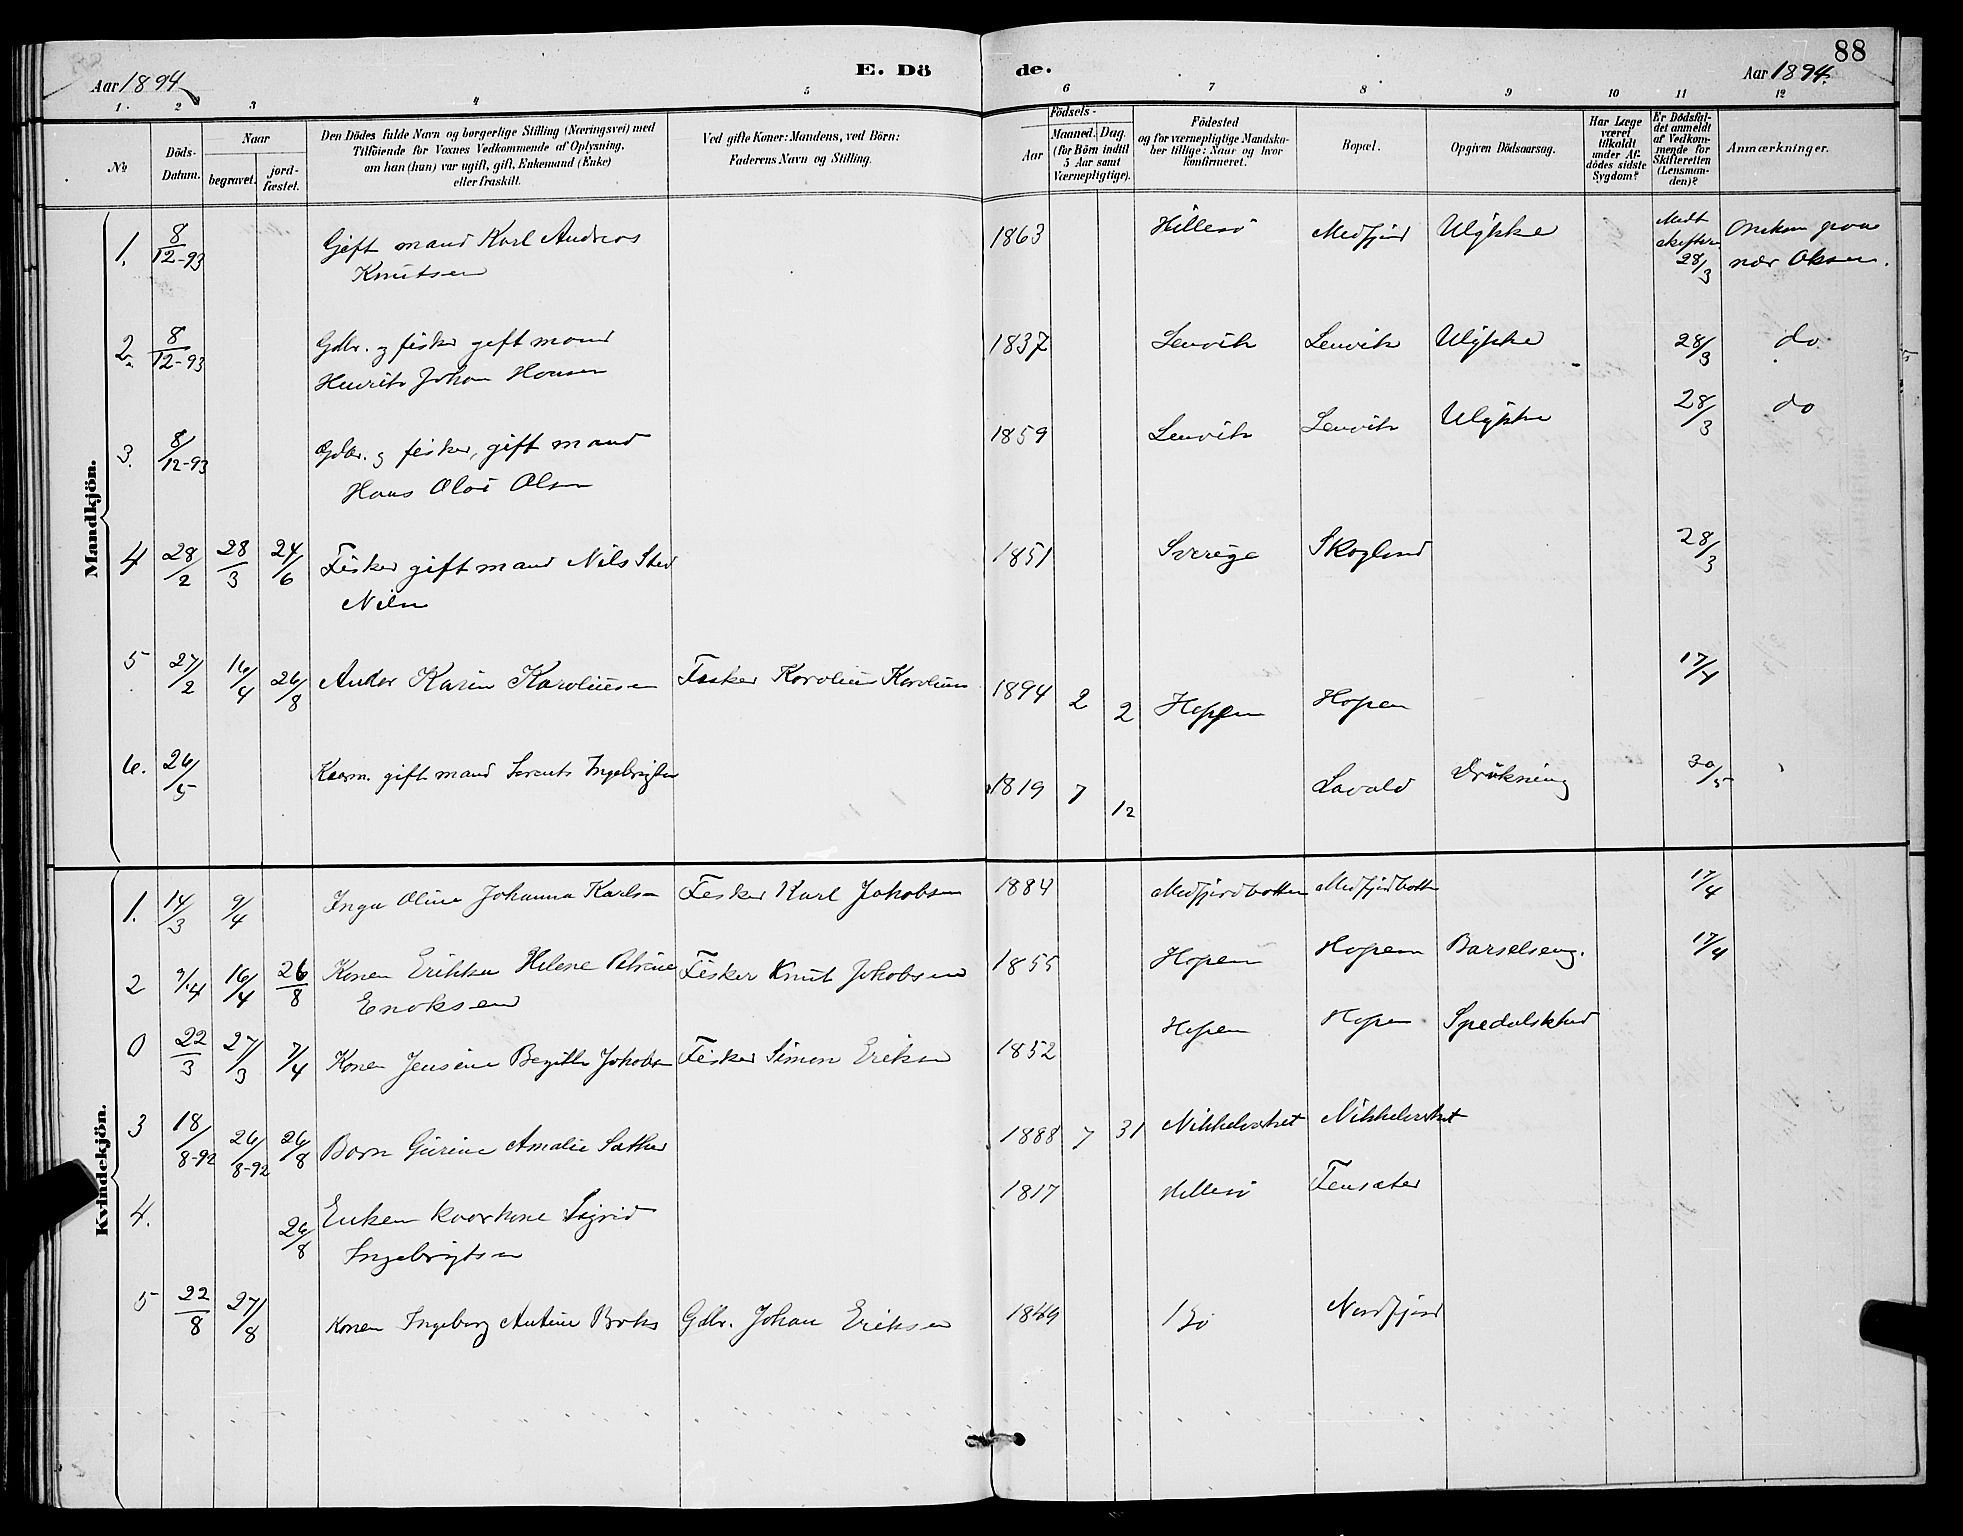 88
Aar 1894
E. Dö
de.
Aar 1894.
1. 2 3 4 5 6 7 8 9 10 11 12
No
Döds-
Datum.
Naar
begravet.
jord-
fæstet.
Den Dödes fulde Navn og borgerlige Stilling (Næringsvei) med
Tilföiende for Voxnes Vedkommende af Oplysning,
om han (hun) var ugift, gift, Enkemand (Enke)
eller fraskilt.
Ved gifte Koner: Mandens, ved Börn:
Faderens Navn og Stilling.
Aar
Födsels-
Maaned. Dag.
(for Börn indtil
5 Aar samt
Værnepligtige).
Födested
og for værnepligtige Mandska-
ber tillige: Naar og hvor
konfirmeret.
Bopæl.
Opgiven Dödsaarsag.
Har Læge
været
tilkaldt
under Af-
dödes sidste
Sygdom?
Er Dödsfal-
det anmeldt
af Vedkom-
mende for
Skifteretten
(Lensman-
den)?
Anmærkninger.
Mandkjön.
1. 8/12-93 Gift mand Karl Andreas 1863 Hillesö Medfjord Ulykke 28/3
Knutsen
2. 8/12-93 Gdbr. og fisker gift mand 1837 Lenvik Lenvik Ulykke 28/3 do
Henrik Johan Hansen
3. 8/12-93 Gdbr. og fisker, gift mand 1859 Lenvik Lenvik Ulykke 28/3 do
Hans Olai Olsen
4 28/2 28/3 24/6 Fisker gift mand Nils 1851 Sverige Skogland 28/3
Nilsn
5 27/2 16/4 26/8 Ander Karin Karoliusen Fisker Karolius Karolius 1894 2 2 Hopen Hopen 17/4
6. 26/5 Kaarm. gift mand Ingebrigtsen 1819 7 12 Lavold Drukning 30/5
Kvindekjön.
1. 14/3 9/4 Inga Oline Johanna Karlsn Fisker Karl Jakobsen 1884 Medfjordbotten Medfjordbotn 17/4
2 9/4 16/4 26/8 Konen Erikka Helene Petrine Fisker Knut Jakobsen 1855 Hopen Hopen Barselseng. 17/4
Enoksen
0 22/3 27/3 7/4 Konen Jensine Bergitte Jakobsn Fisker Simon Eriksen 1852 Hopen Hopen Spedalskhed
3 18/8-92 26/8-92 26/8 Barn Gurine Amalie Sæther 1888 7 31 Nikkelverket Nikkelverket
4. 26/8 Enken kaarkone Sigrid 1817 Hillesö Finsæter
Ingebrigtsen
5 22/8 27/8 Konen Ingeborg Antine Broks Gdbr. Johan Eriksen 1849 Bö Nordfjord